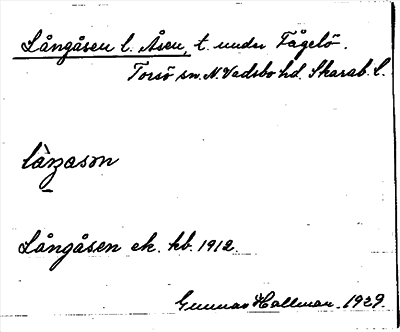 Långåsen l. Åsen, t. under Fågelö.
Torsö sn. N. Vadsbo hd. Skarab. L.
làŋason
Långåsen ek. kb. 1912.
Gunnar Hallman. 1929.